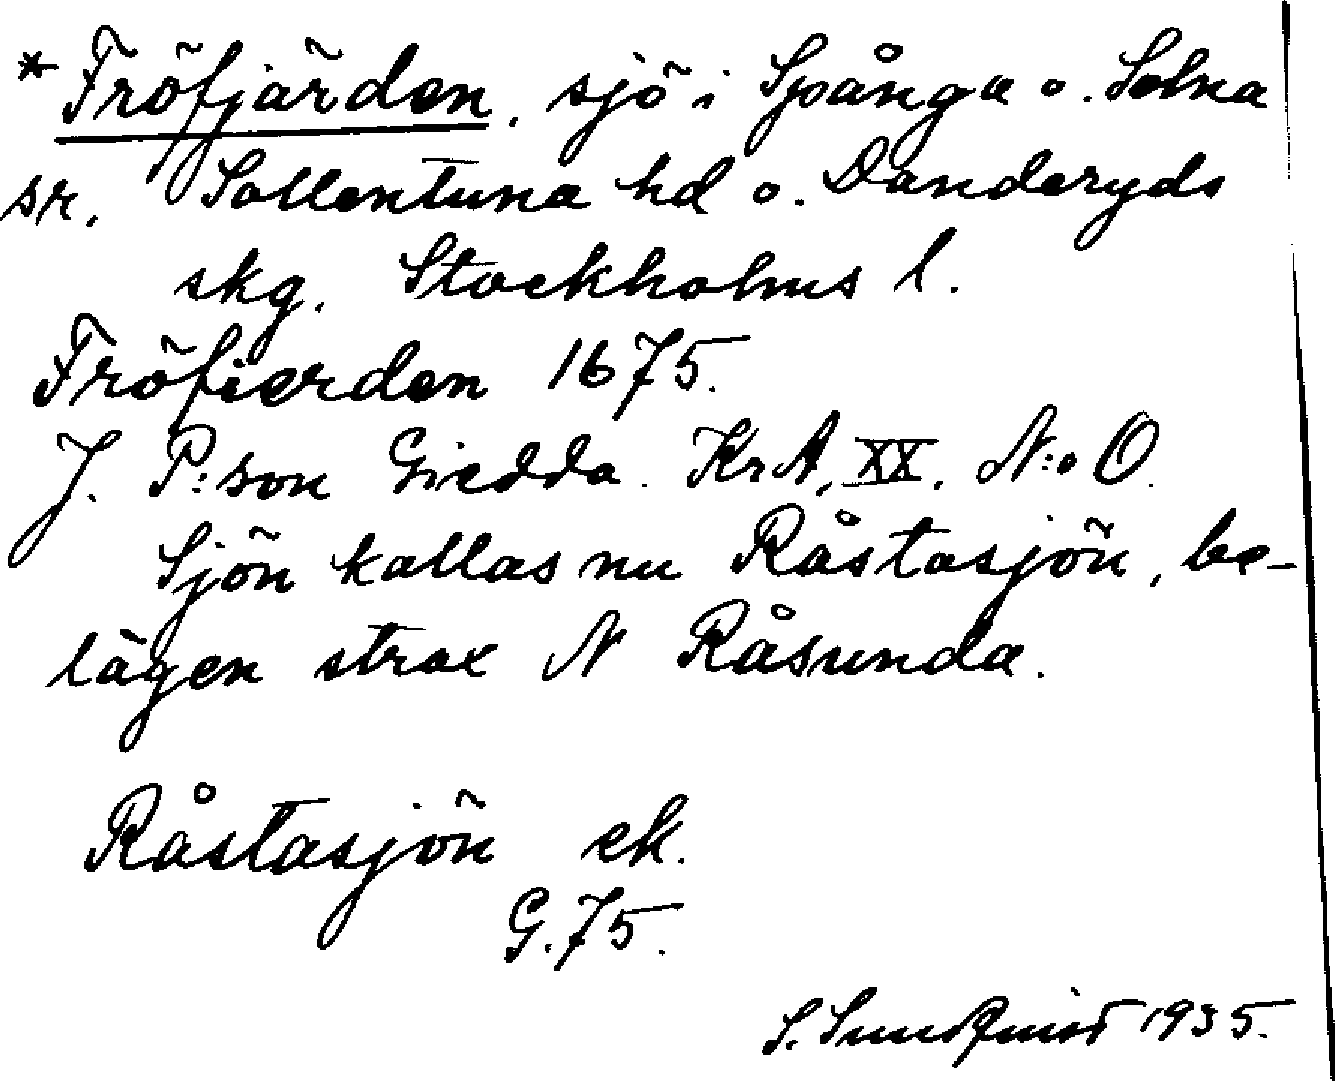 *Fröfjärden, sjö i Spånga o. Solna
sr. Sollentuna hd o. Danderyds
skg. Stockholms l.
Fröfierden 1675.
J. P:son Giedda. KrA, XX. N:o O.
Sjön kallas nu Råstasjön, be-
lägen strax N Råsunda.
Råstasjön ek.
G.75.
S. Sundquist 1935.